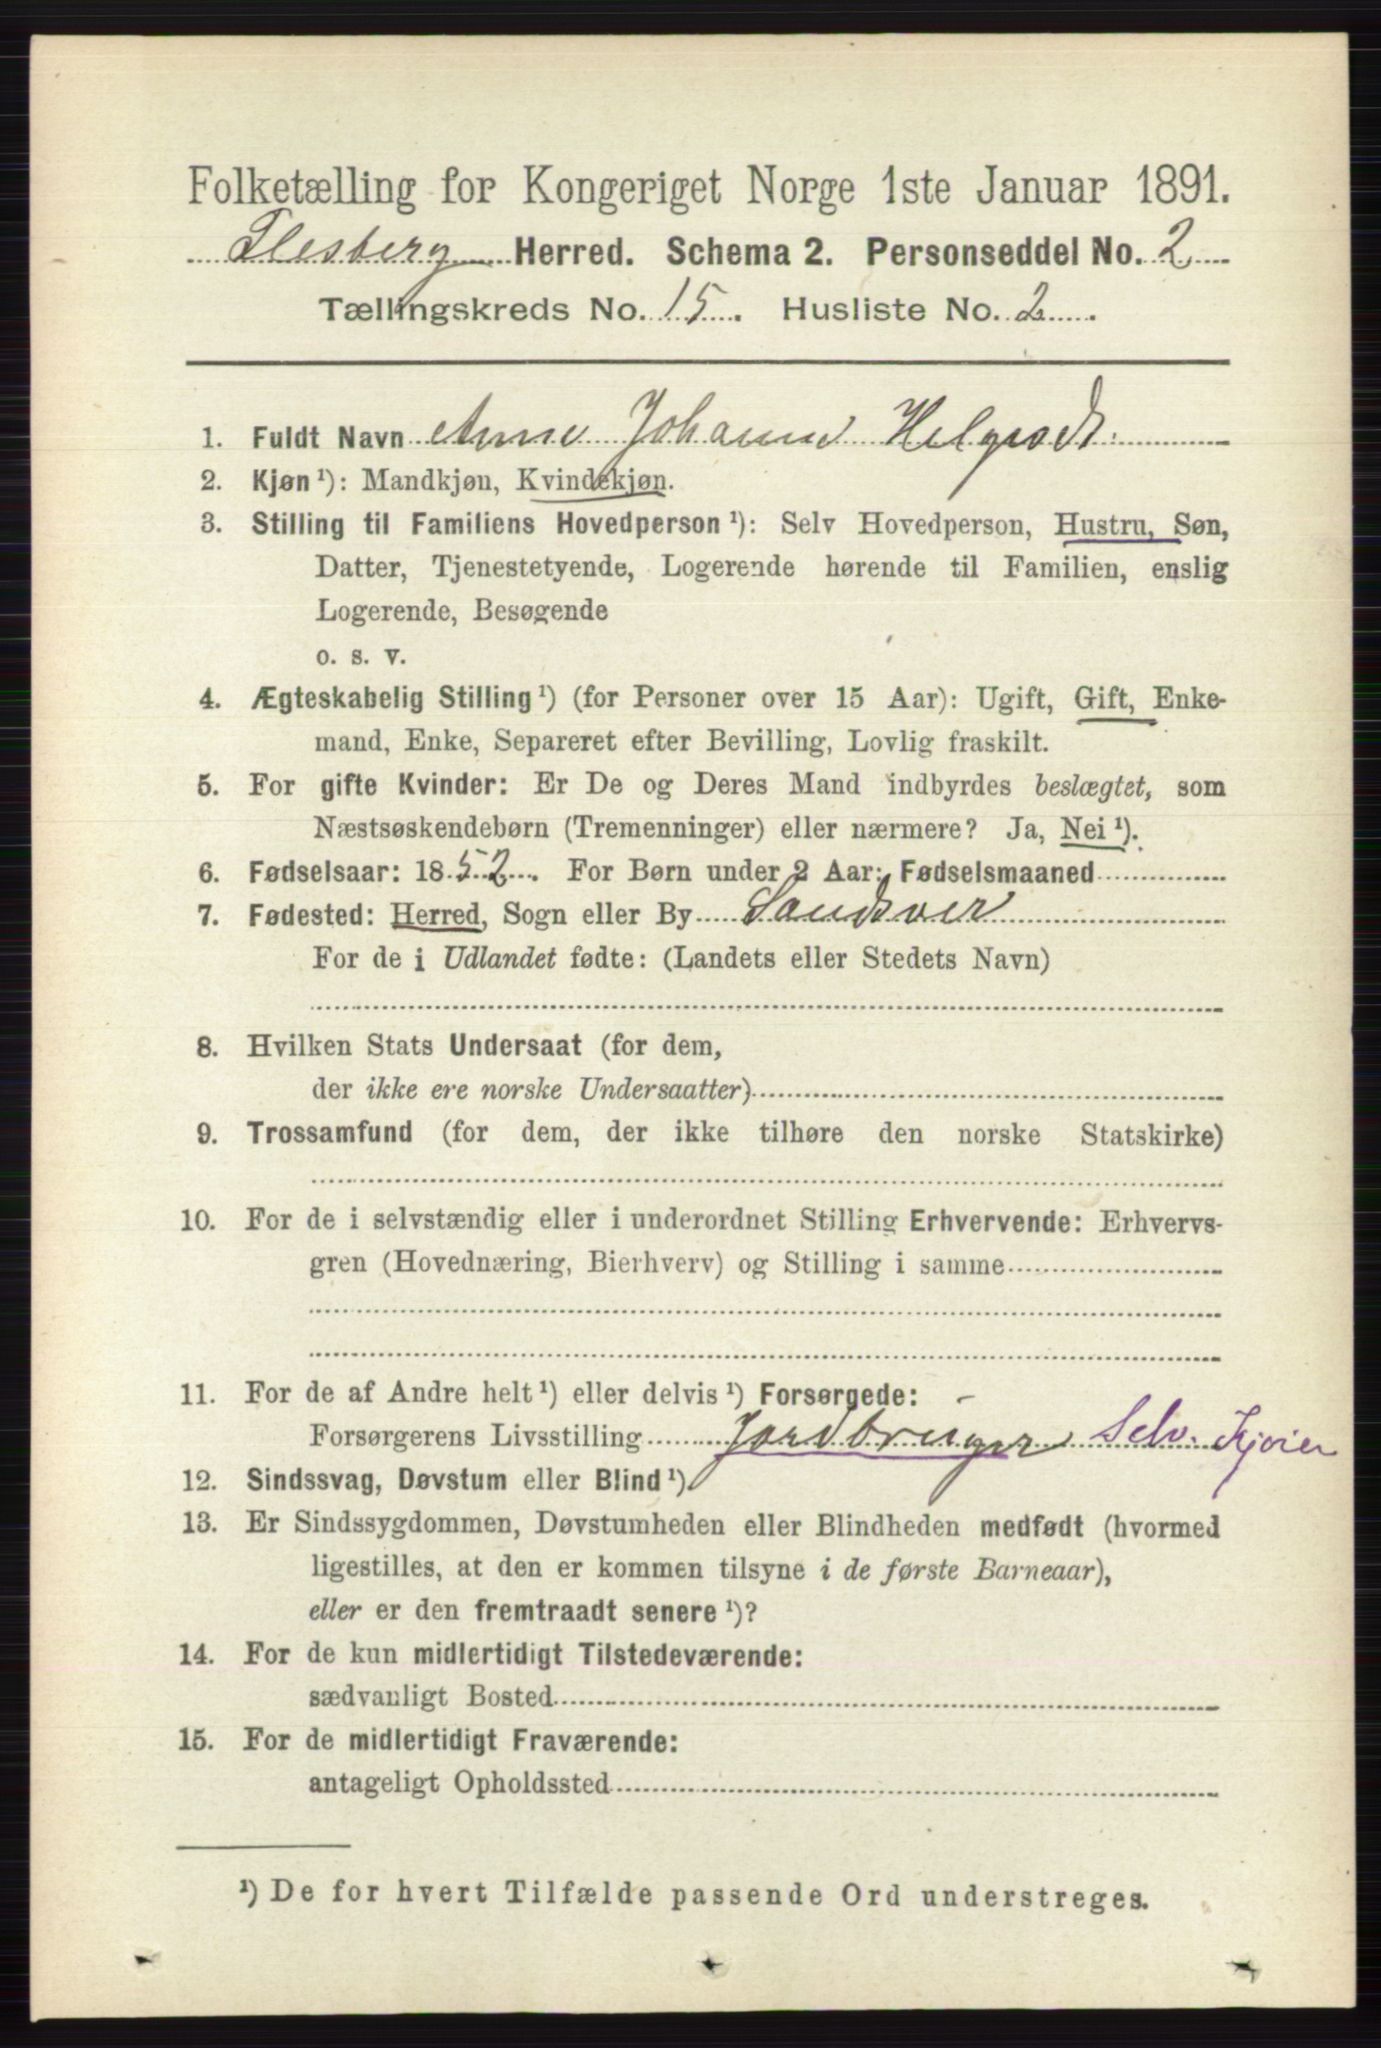 Folketælling for Kongeriget Norge 1ste Januar 1891.
Flesberg Herred. Schema 2. Personseddel No. 2
Tællingskreds No. 15. Husliste No. 2
1. Fuldt Navn Anne Johanne
2. Kjøn ¹): Mandkjøn, Kvindekjøn.
3. Stilling til Familiens Hovedperson ¹): Selv Hovedperson, Hustru, Søn,
Datter, Tjenestetyende, Logerende hørende til Familien, enslig
Logerende, Besøgende
o. s. v.
4. Ægteskabelig Stilling ¹) (for Personer over 15 Aar): Ugift, Gift, Enke-
mand, Enke, Separeret efter Bevilling, Lovlig fraskilt.
5. For gifte Kvinder: Er De og Deres Mand indbyrdes beslægtet, som
Næstsøskendebørn (Tremenninger) eller nærmere? Ja, Nei ¹).
6. Fødselsaar: 1852. For Børn under 2 Aar: Fødselsmaaned
7. Fødested: Herred, Sogn eller By Sandsver
For de i Udlandet fødte: (Landets eller Stedets Navn)
8. Hvilken Stats Undersaat (for dem,
der ikke ere norske Undersaatter)
9. Trossamfund (for dem, der ikke tilhøre den norske Statskirke)
10. For de i selvstændig eller i underordnet Stilling Erhvervende: Erhvervs-
gren (Hovednæring, Bierhverv) og Stilling i samme
11. For de af Andre helt ¹) eller delvis ¹) Forsørgede:
Forsørgerens Livsstilling Jordbruger Selv. Kjøier
12. Sindssvag, Døvstum eller Blind ¹)
13. Er Sindssygdommen, Døvstumheden eller Blindheden medfødt (hvormed
ligestilles, at den er kommen tilsyne i de første Barneaar),
eller er den fremtraadt senere ¹)?
14. For de kun midlertidigt Tilstedeværende:
sædvanligt Bosted
15. For de midlertidigt Fraværende:
antageligt Opholdssted
¹) De for hvert Tilfælde passende Ord understreges.